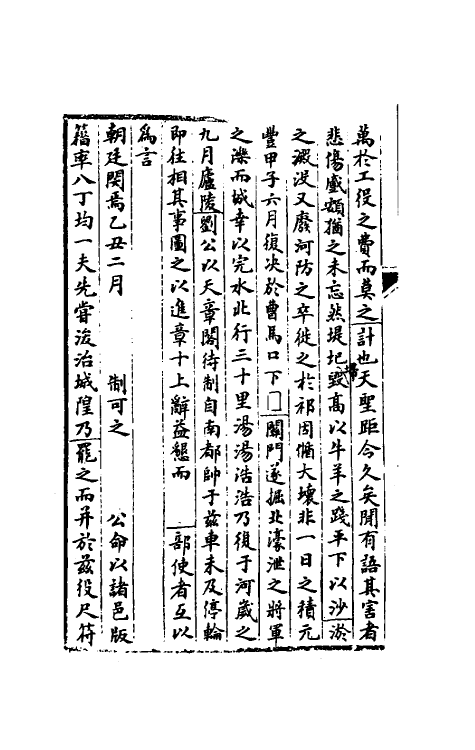 萬於工役之費而莫之計也天聖距今久矣聞有語其害者
悲傷戲頞猶之未忘然堤圮毀高以牛羊之踐平下以沙淤
之澱没又廢河防之卒徙之於祁因循大壞非一日之積元
豐甲子六月復决於曹馬口下□闗門遂掘北濠泄之將軍
之濼而城幸以完水北行三十里湯湯浩浩乃復于河嵗之
九月廬陵劉公以天章閣待制自南都帥于兹車未及停輪
即往相其事圖之以進章十上辭益懇而 部使者互以
為言
朝廷閔焉乙丑二月 制可之 公命以諸邑版
籍率八丁均一夫先嘗浚治城隍乃罷之而并於兹役尺符